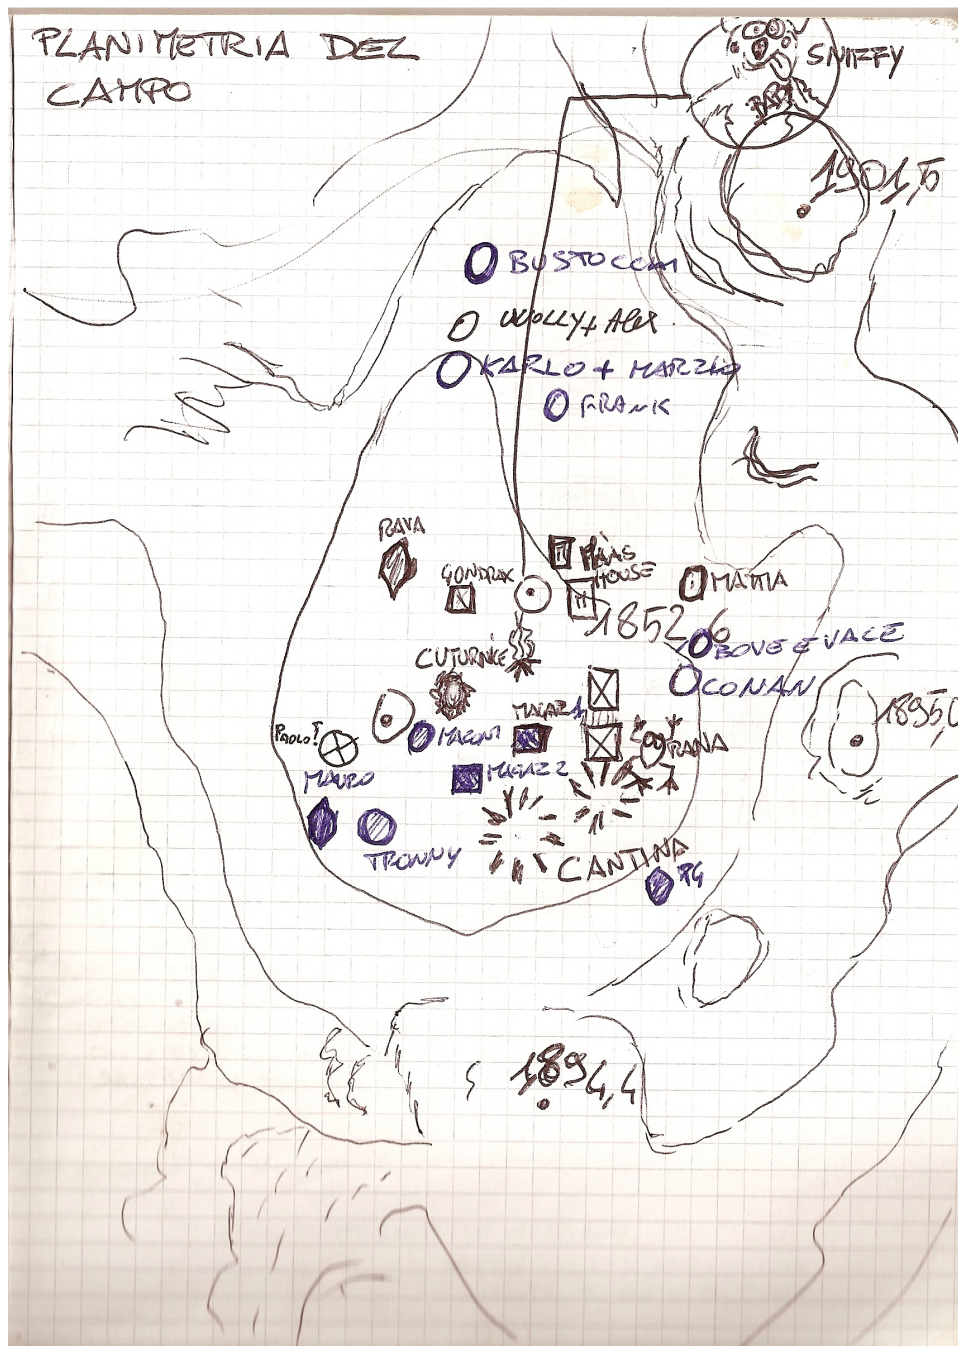 PLANIMETRIA DEL
CAMPO
SNIFFY
1901,5
BUSTOCCHI
WOLLY + ALEX
KARLO + MARZIO
FRANK
RAVA
GONDRAX
HOUSE
MATTIA
1852,6
BOVE E VACE
CUTURNIE
CONAN
MAGAZ 1
PAOLO?
MACONI
RANA
MAURO
MAGAZ 2
TRONNY
CANTINA
1894,4